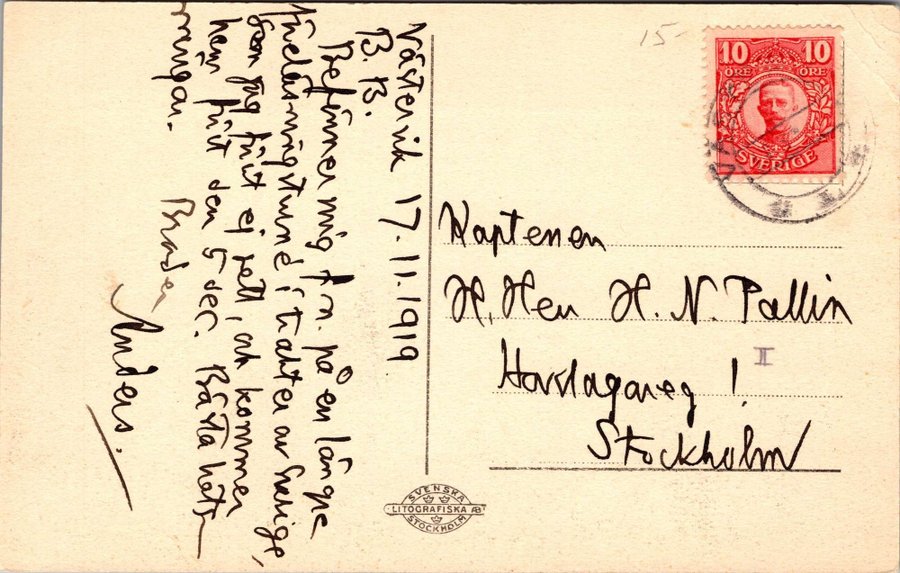 Västervik 17.11.1919
B. B.
Befinner mig f.n. på en längre
föreläsningsturné i trakter av Sverige,
som jag förut ej sett, och kommer
hem först den 5 dec. Bästa häls-
ningar.
Broder
Anders.
15-
10 10
ÖRE ÖRE
SVERIGE
Kaptenen
H. Herr H. N. Pallin
I
1.
Stockholm
SVENSKA
LITOGRAFISKA AB
STOCKHOLM